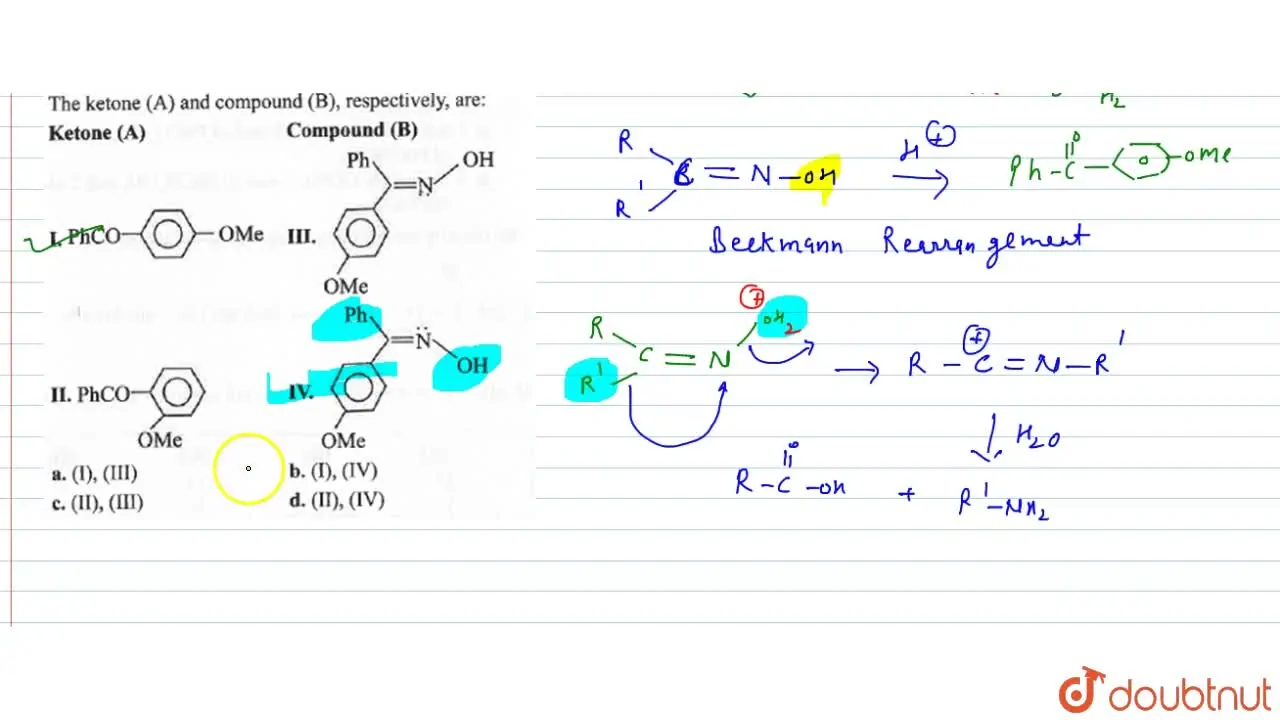 The ketone (A) and compound (B), respectively, are:
Ketone (A) Compound (B)
Ph OH
N
I. PhCO OMe III.
OMe
Ph N̈
OH
II. PhCO IV.
OMe OMe
a. (I), (III) b. (I), (IV)
c. (II), (III) d. (II), (IV)
H2
R
C = N - OH
R'
H ⊕
O
Ph - C - OMe
Beckmann Rearrangement
R ⊕ OH2
C = N
R'
R - C = N - R'
⊕
H2O
O
R - C - OH + R' - NH2
doubtnut